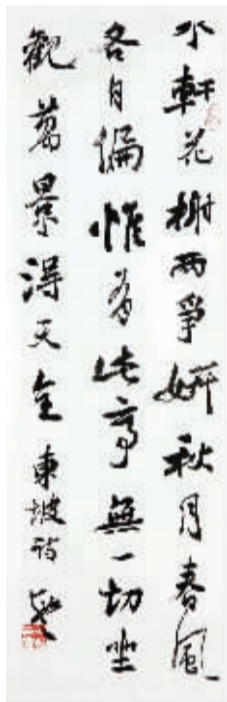 水軒花榭两爭妍秋月春風
各自偏惟有此亭無一物坐
觀萬景得天全 東坡詩